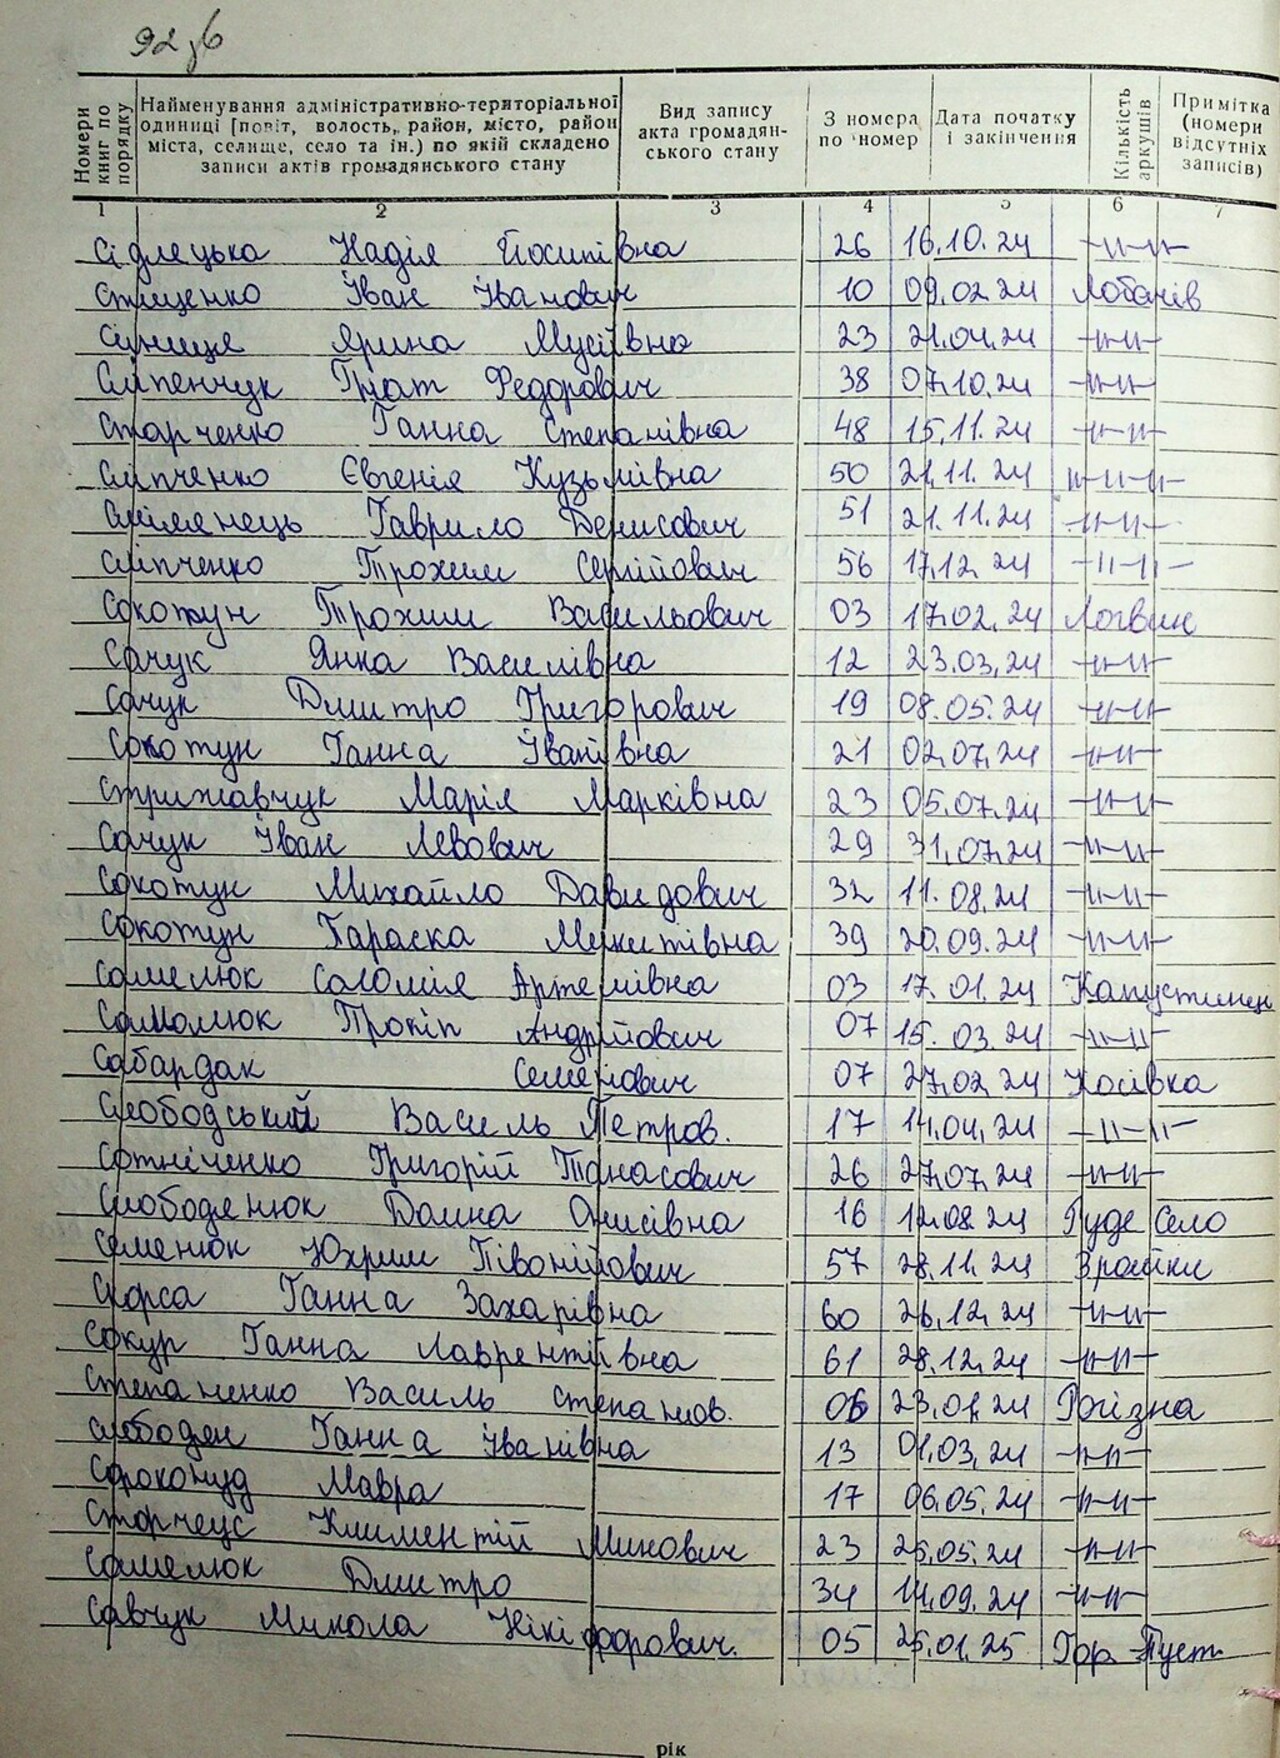 92 зв
Номери книг по порядку
Найменування адміністративно-територіальної одиниці [повіт, волость, район, місто, район міста, селище, село та ін.) по якій складено записи актів громадянського стану
Вид запису акта громадян-ського стану
З номера по номер
Дата початку і закінчення
Кількість аркушів
Примітка (номери відсутніх записів)
1 2 3 4 5 6 7
Сідлецька Надія Йосипівна 26 16.10.24 -"-"-
Стиценко Іван Іванович 10 09.02.24 Лобачів
Сіниця Ярина Мусіївна 23 21.04.24 -"-"-
Сліпенчук Гнат Федорович 38 07.10.24 -"-"-
Старченко Ганна Степанівна 48 15.11.24 -"-"-
Сліпченко Євгенія Кузьмівна 50 21.11.24 "-"-"-
Смілянець Гаврило Денисович 51 21.11.24 -"-"-
Сліпченко Трохим Сергійович 56 17.12.24 -"-"-
Сокотун Трохим Васильович 03 17.02.24 Логвин
Сачук Янка Василівна 12 23.03.24 -"-"-
Сачук Дмитро Григорович 19 08.05.24 -"-"-
Сокотун Ганна Іванівна 21 02.07.24 -"-"-
Стрижавчук Марія Марківна 23 05.07.24 -"-"-
Сачук Іван Левович 29 31.07.24 -"-"-
Сокотун Михайло Давидович 32 11.08.24 -"-"-
Сокотун Параска Микитівна 39 20.09.24 -"-"-
Самелюк Соломія Артемівна 03 17.01.24 Капустинец
Самолюк Прокіп Андрійович 07 15.03.24 -"-"-
Сабардак Семенович 07 27.02.24 Косівка
Слободський Василь Петров. 17 14.04.24 -"-"-
Сотніченко Григорій Танасович 26 27.07.24 -"-"-
Слободенюк Домна Онисівна 16 12.08.24 Руде Село
Семенюк Юхрим Півонійович 57 28.11.24 Зрайки
Скорса Ганна Захарівна 60 26.12.24 -"-"-
Сокур Ганна Лаврентіївна 61 28.12.24 -"-"-
Степаненко Василь Степанов. 06 23.01.24 Рогізна
Слободен Ганна Іванівна 13 01.03.24 -"-"-
Сороконуд Мавра 17 06.05.24 -"-"-
Старчеус Климентій Минович 23 25.05.24 -"-"-
Самелюк Дмитро 34 14.09.24 -"-"-
Савчук Микола Нікіфорович. 05 25.01.25 Гор-Пуст
рік